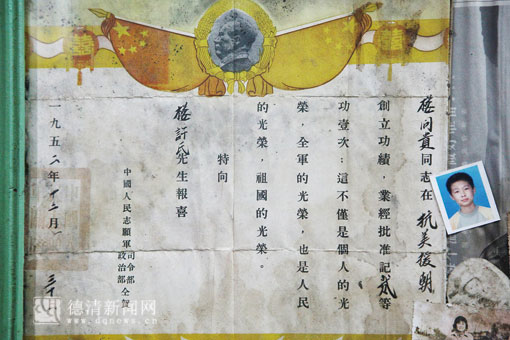 楼问貴同志在抗美援朝
創立功績，業經批准記貳等
功壹次：這不僅是個人的光
榮，全軍的光榮，也是人民
的光榮，祖國的光榮。
特向
楼 氏先生報喜
中國人民志願軍司令部
政治部全賀
一九五二年十二月
德清新闻网
www.dqnews.cn